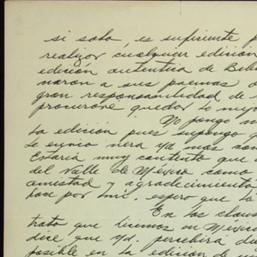 si sola, es suficiente p
realizar cualquier edicion
edición autentica de Bibl
naron a sus poemas
gran responsabilidad de
procurare quedar lo mejo
No pongo
la edición pues supongo
le envio sera ya mas
Estaria muy contento que
del Valle de Mexico como
amistad y agradecimiento
por mi. espero que la
En las claus
trato que hicimos en Mexico
dice que Vd. percibira
posible en la edicion de